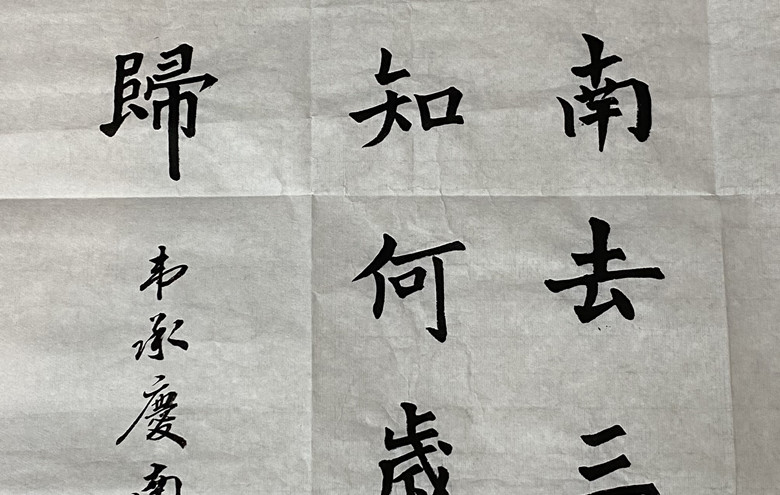 南去三
知何歲
歸
韦承慶南